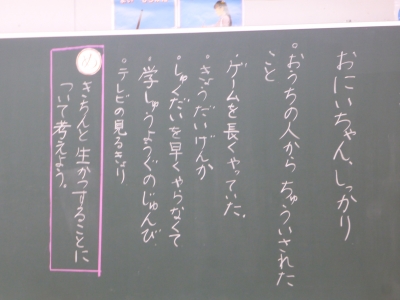 おにいちゃん、しっかり
。おうちの人から ちゅういされた
こと
・ゲームを長くやっていた。
・きょうだいげんか
・しゅくだいを早くやらなくて
・学しゅうようぐのじゅんび
・テレビの見るきまり
きちんと生かつすることに
ついて考えよう。